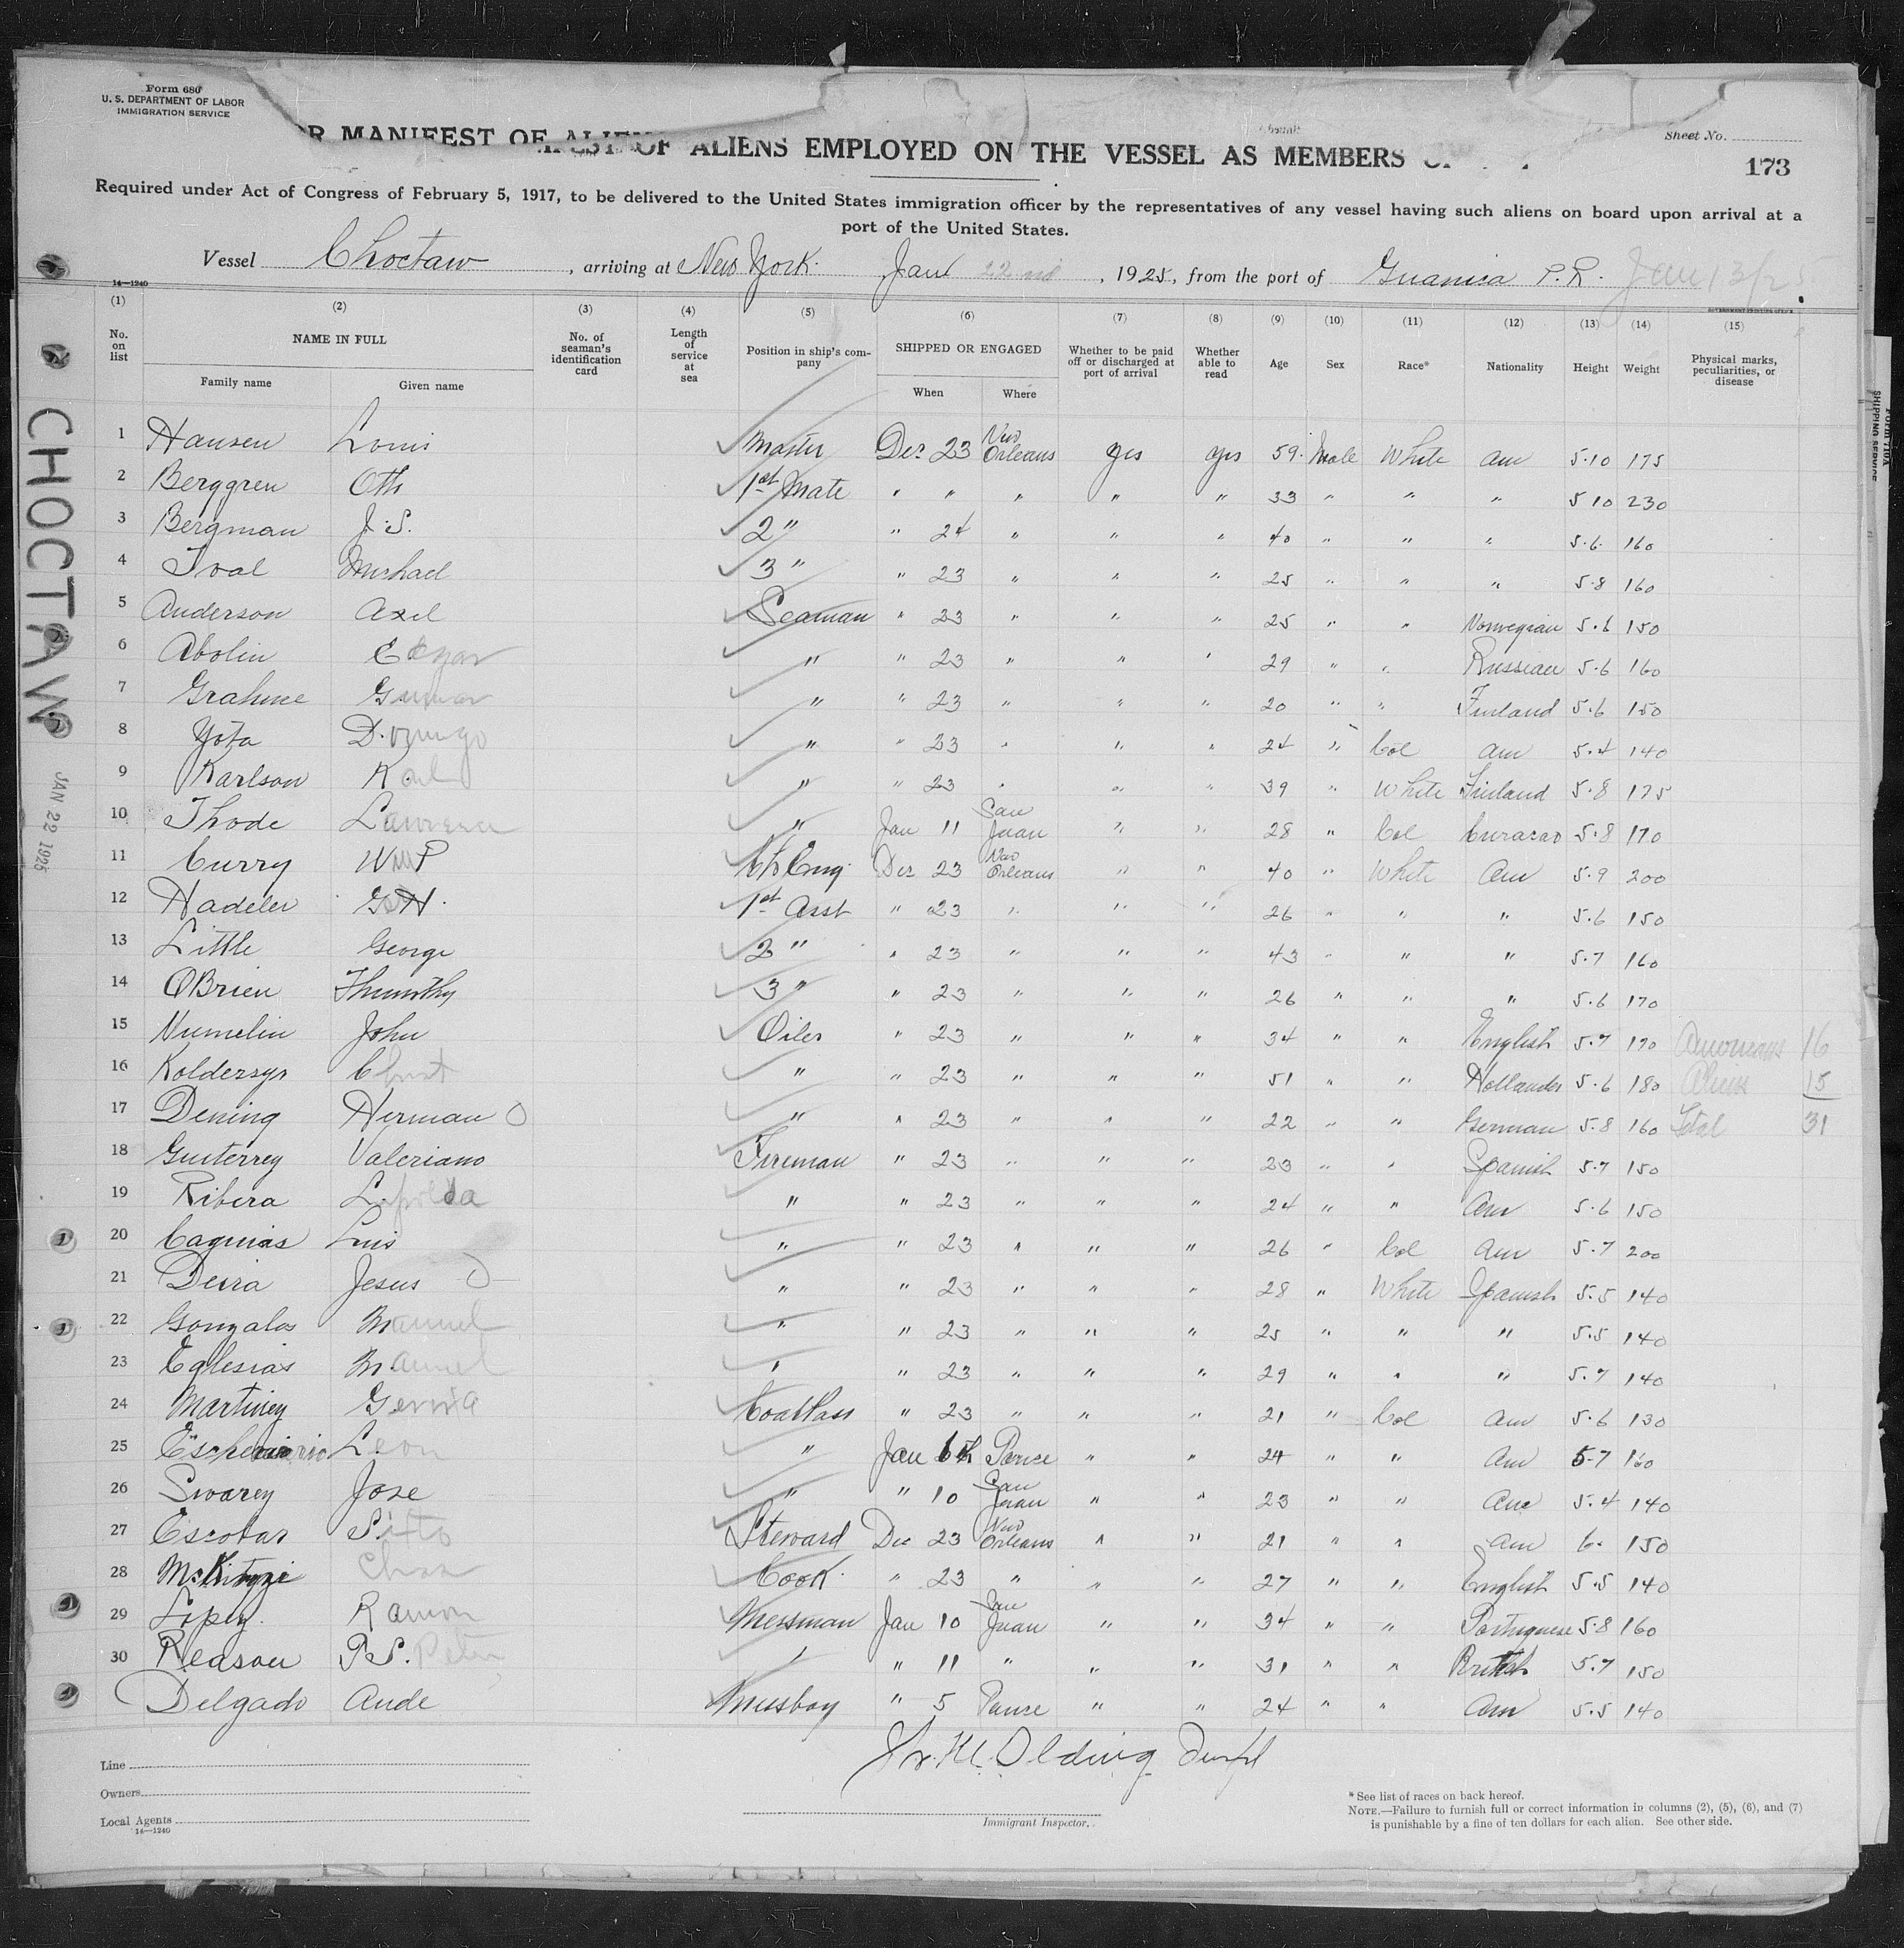 Form 680
U. S. DEPARTMENT OF LABOR
IMMIGRATION SERVICE
Sheet No.
OR MANIFEST OF ALIENS EMPLOYED ON THE VESSEL AS MEMBERS
173
Required under Act of Congress of February 5, 1917, to be delivered to the United States immigration officer by the representatives of any vessel having such aliens on board upon arrival at a
port of the United States.
Vessel Choctaw, arriving at New York. Jan 22nd, 1925, from the port of Guanica P.R. Jan 13/25
14—1240
(1) (2) (3) (4) (5) (6) (7) (8) (9) (10) (11) (12) (13) (14) (15)
No. on list NAME IN FULL No. of seaman's identification card Length of service at sea Position in ship's company SHIPPED OR ENGAGED Whether to be paid off or discharged at port of arrival Whether able to read Age Sex Race* Nationality Height Weight Physical marks, peculiarities, or disease
Family name Given name When Where
1 Hansen Louis Master Dec 23 New Orleans yes yes 59 Male White am 5.10 175
2 Berggren Oth 1st Mate " " " " " 33 " " " 5 10 230
3 Bergman J.S. 2 " " 24 " " " 40 " " " 5.6. 160
4 Michael 3 " " 23 " " " 25 " " " 5.8 160
5 Anderson Axel Seaman " 23 " " " 25 " " Norwegian 5.6 150
6 Abolin Edgar " " 23 " " " 29 " " Russian 5.6 160
7 Grahme Gunnar " " 23 " " " 20 " " Finland 5.6 150
8 Yota D. " " 23 " " " 24 " Col am 5.4 140
9 Karlson Karl " " 23 " " " 39 " White Finland 5.8 175
10 Thode Lawrence " Jan 11 San Juan " " 28 " Col Curacao 5.8 170
11 Curry Wm P Ch Eng. Dec 23 New Orleans " " 40 " White Am 5.9 200
12 Hadeler G H. 1st Asst " 23 " " " 26 " " " 5.6 150
13 Little George 2 " " 23 " " " 43 " " " 5.7 160
14 OBrien Thimothy 3 " " 23 " " " 26 " " " 5.6 170
15 Numelin John Oiler " 23 " " " 34 " " English 5.7 170 Americans 16
16 Koldersyr Christ " " 23 " " " 51 " " Hollander 5.6 180 Aliens 15
17 Dening Herman O " " 23 " " " 22 " " German 5.8 160 Total 31
18 Guterrey Valeriano Fireman " 23 " " " 23 " " Spanish 5.7 150
19 Ribera " " 23 " " " 24 " " Am 5.6 150
20 Caquias Luis " " 23 " " " 26 " Col Am 5.7 200
21 Devra Jesus " " 23 " " " 28 " White Spanish 5.5 140
22 Gonzalos Manuel " " 23 " " " 25 " " " 5.5 140
23 Eglesias Manuel " " 23 " " " 29 " " " 5.7 140
24 Martiney Coal Pass " 23 " " " 21 " Col am 5.6 130
25 Leon " Jan 6th Ponce " " 24 " " Am 5-7 160
26 Swarey Jose " " 10 San Juan " " 23 " " Am 5.4 140
27 Escobar Sixto Steward Dec 23 New Orleans " " 21 " " am 6. 150
28 McKinzi Chas Cook. " 23 " " " 27 " " English 5.5 140
29 Lopez. Ramon Messman Jan 10 San Juan " " 34 " " Portuguese 5.8 160
30 Reason P.S. Peter " " 11 " " " 31 " " British 5.7 150
Delgado Aude Messboy " 5 Ponce " " 24 " " Am 5.5 140
CHOCTAW
JAN 22 1925
Line
Owners
Local Agents
14—1240
Immigrant Inspector.
* See list of races on back hereof.
NOTE.—Failure to furnish full or correct information in columns (2), (5), (6), and (7)
is punishable by a fine of ten dollars for each alien. See other side.